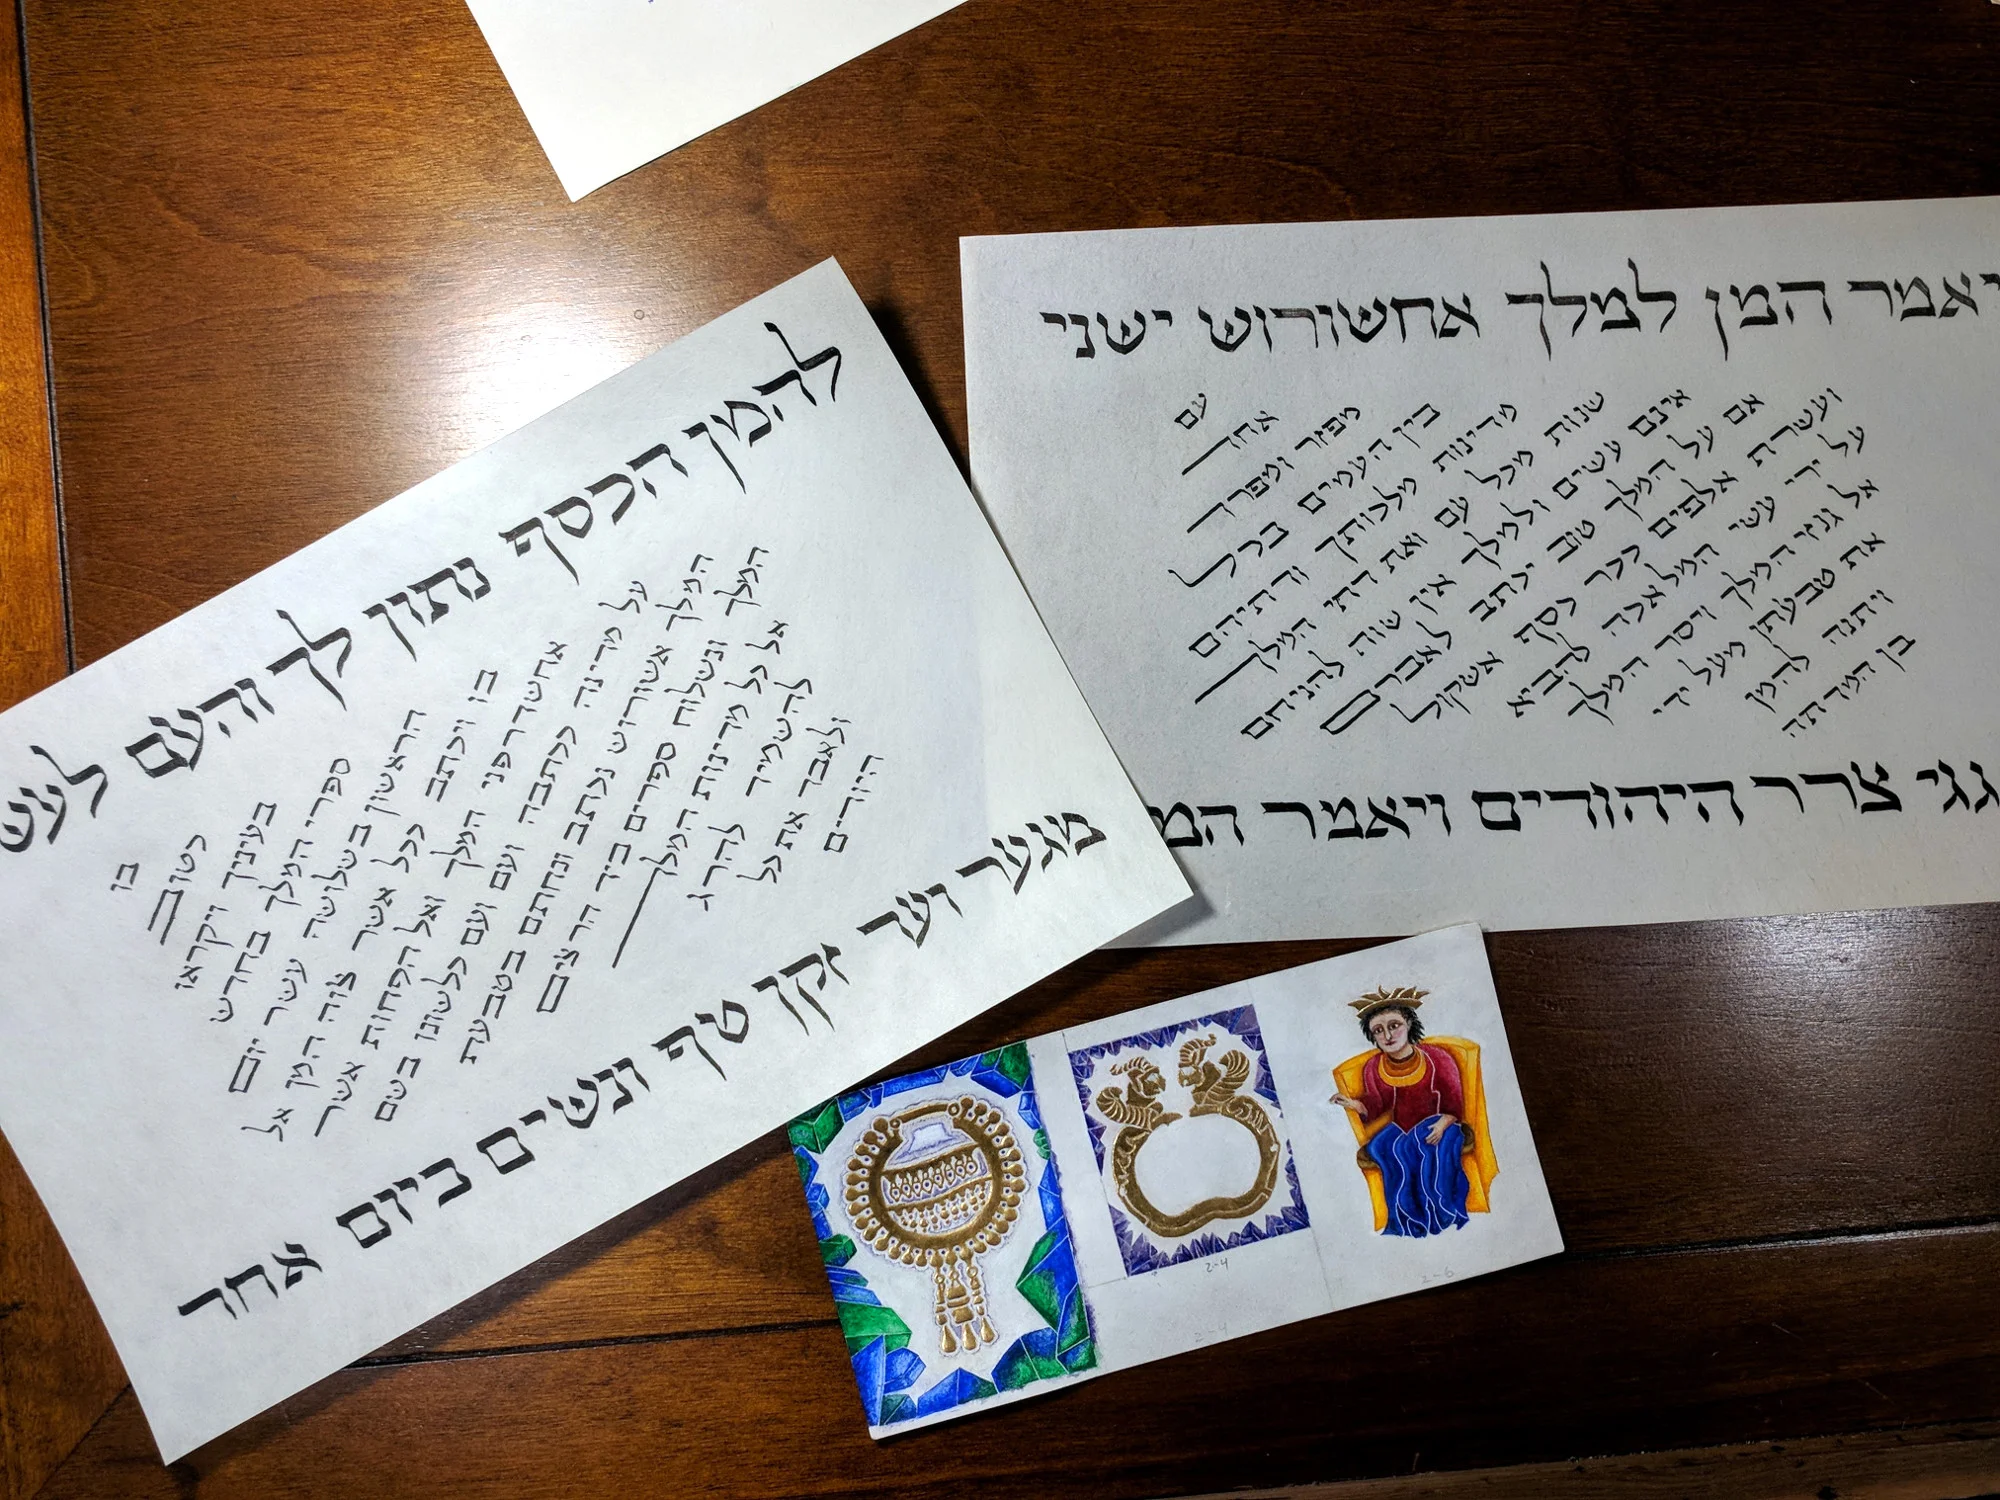 יאמר המן למלך אחשורוש ישני
עם
אחד
מפזר ומפרד
בין העמים בכל
מדינות מלכותך ודתיהם
שנות מכל עם ואת דתי המלך
אינם עשים ולמלך אין שוה להניחם
אם על המלך טוב יכתב לאבדם
ועשרת אלפים ככר כסף אשקול
על יד עשי המלאכה להביא
אל גנזי המלך ויסר המלך
את טבעתו מעל ידו
ויתנה להמן
בן המדתה
גגי צרר היהודים ויאמר המ
להמן הכסף נתון לך והעם לעש
בו
כטוב
בעיניך ויקראו
ספרי המלך בחדש
הראשון בשלושה עשר יום
בו ויכתב ככל אשר צוה המן אל
אחשדרפני המלך ואל הפחות אשר
על מדינה ככתבה ועם ועם כלשונו בשם
המלך אשורוש נכתב ונחתם בטבעת
המלך ונשלוח ספרים ביד הרצים
אל כל מדינות המלך
להשמיד להרג
ולאבד את כל
היודים
מנער ועד זקן טף ונשים ביום אחד
2-4
2-6
2-4